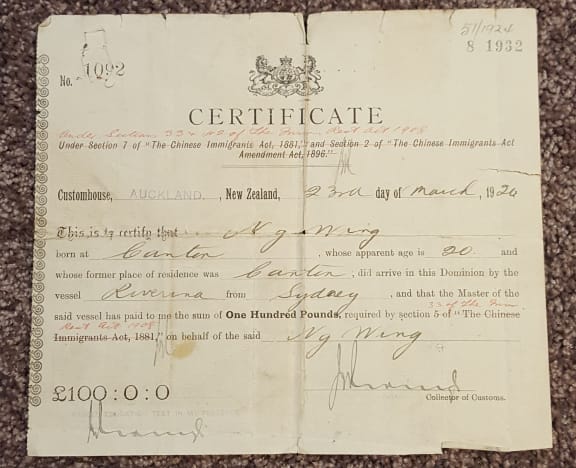 51/1924
8 1932
No. 1092
CERTIFICATE
Under Sections 33 & 42 of the Imm. Rest Act 1908
Under Section 7 of "The Chinese Immigrants Act, 1881," and Section 2 of "The Chinese Immigrants Act
Amendment Act, 1896."
Customhouse, AUCKLAND, New Zealand, 23rd day of March, 1920
This is to certify that Ng Wing
born at Canton, whose apparent age is 20 and
whose former place of residence was Canton, did arrive in this Dominion by the
vessel Riverina from Sydney, and that the Master of the
33 of the Imm
said vessel has paid to me the sum of One Hundred Pounds, required by section 5 of "The Chinese
Rest Act 1908
Immigrants Act, 1881," on behalf of the said Ng Wing
£100:0:0
Collector of Customs.
TEST IN MY PRESENCE